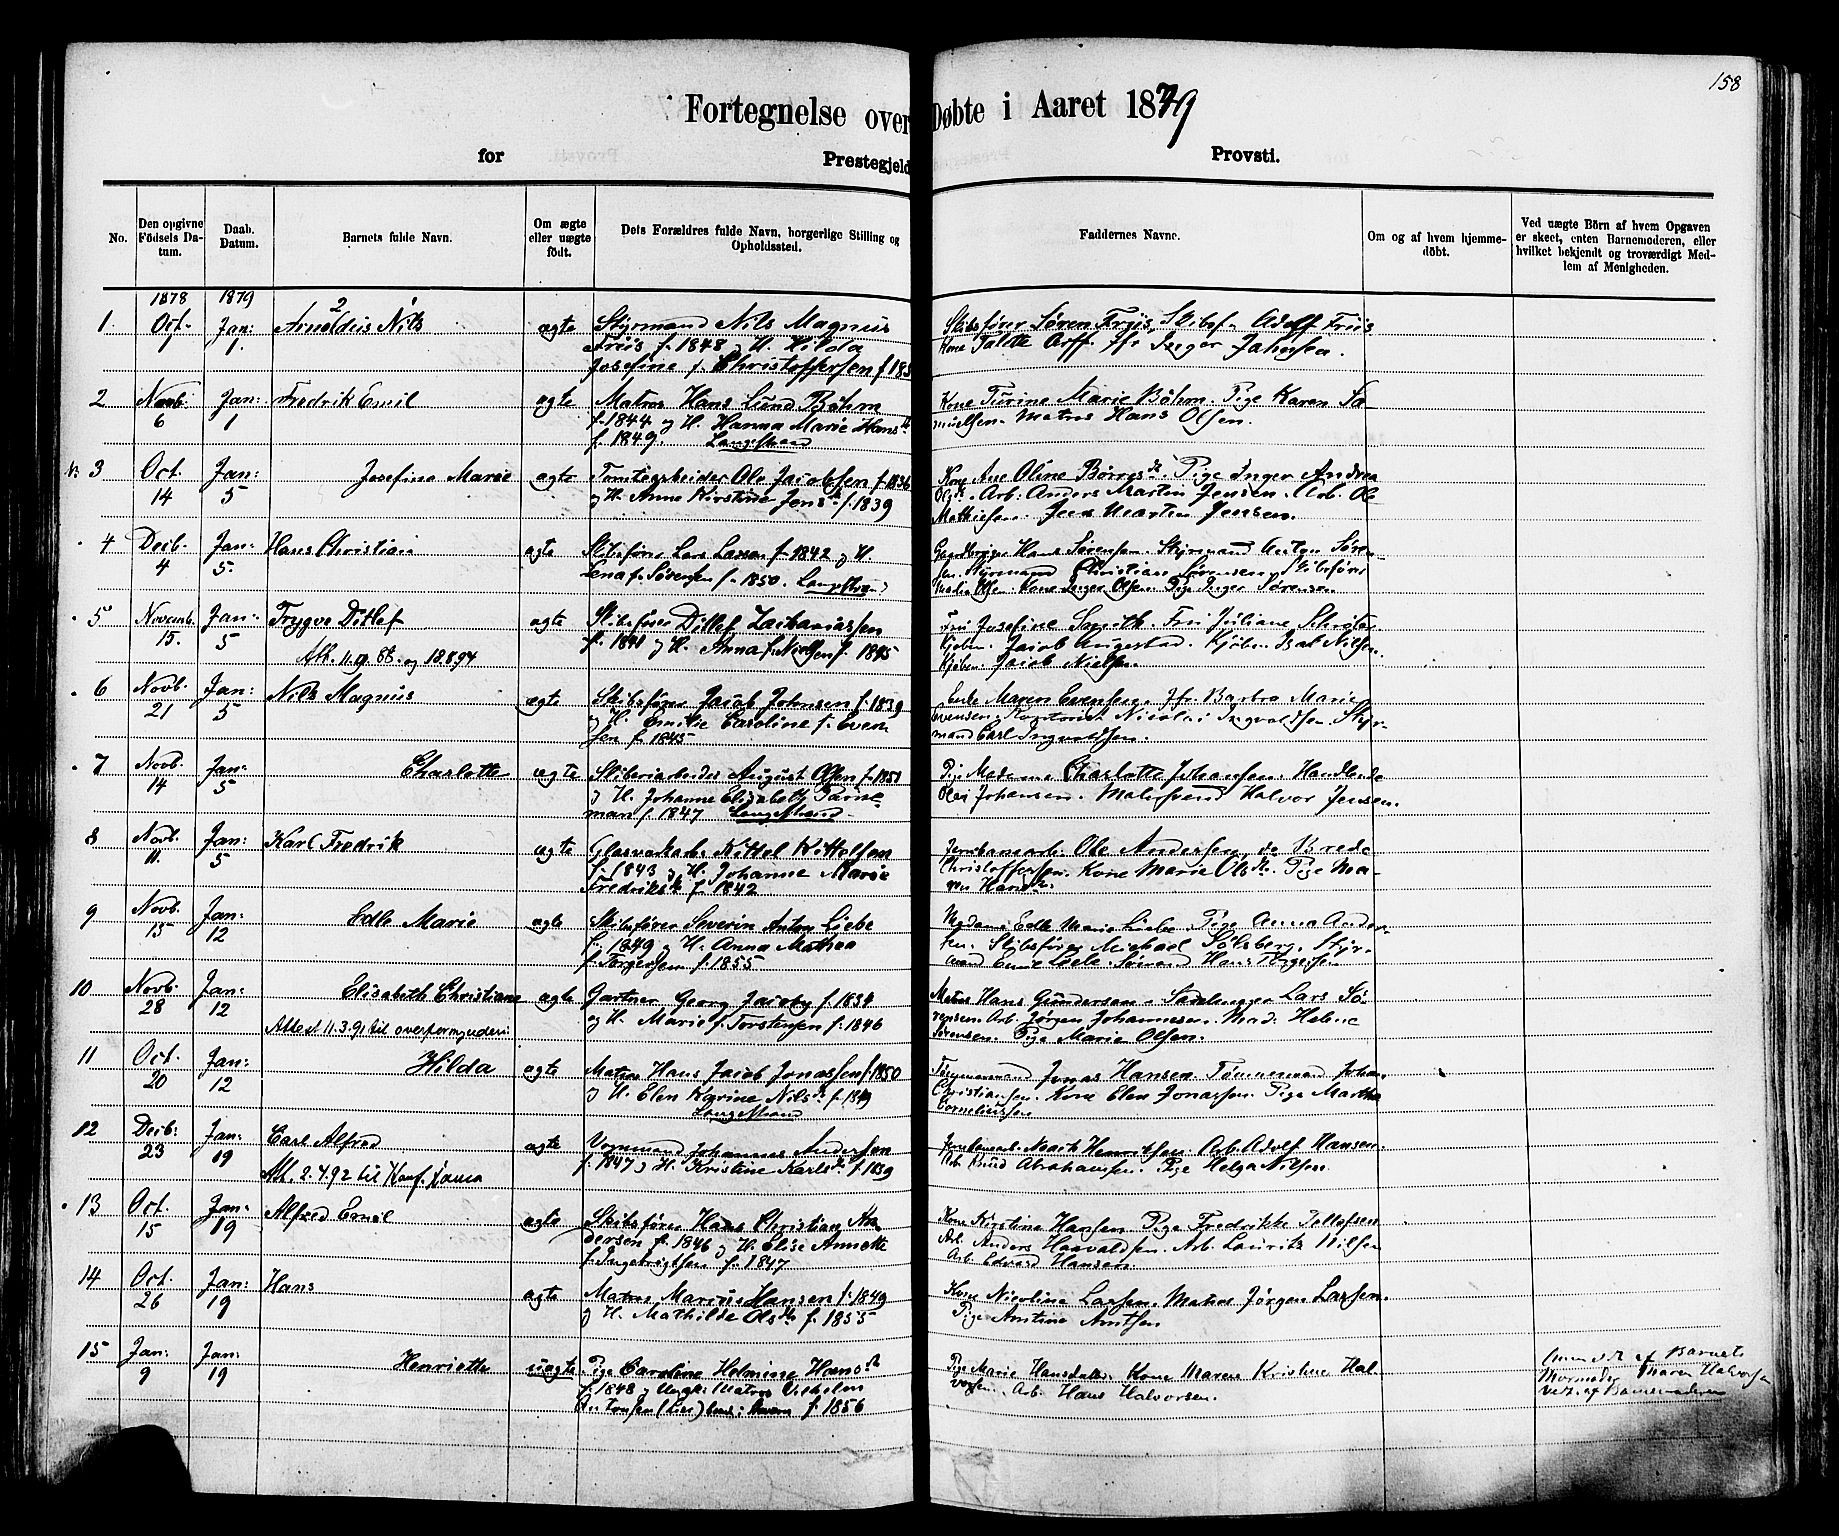 158
Fortegnelse over Døbte i Aaret 1879
for Prestegjeld Provsti.
No.
Den opgivne Fødsels Da-
tum.
Daab.
Datum.
Barnets fulde Navn.
Om ægte
eller uægte
født.
Dets Forældres fulde Navn, borgerlige Stilling og
Opholdssted.
Faddernes Navne.
Om og af hvem hjemme-
døbt.
Ved uægte Börn af hvem Opgaven
er skeet, enten Barnemoderen, eller
hvilket bekjendt og troværdigt Med-
lem af Menigheden.
1878 1879
1. Oct. 1 Jan: 1. Arnoldus Nils ægte Styrmand Nils Magnus
Friis f. 1848 og H. Hilda
Josefine f. Christoffersen f. 185
Skibsfører Søren Friis, Skibsf. Adolf Friis
Kone Orff. Jfr Inger Johnsen.
2 Novb. 6 Jan: 1 Fredrik Emil ægte Matros Hans Lund Bøhm
f. 1844 og H. Hanna Marie Hansdr
f. 1849. Langestrand
Kone Turine Marie Bøhm. Pige Karen Sa-
muelsen. Matros Hans Olsen.
3 Oct 14 Jan: 5 Josefine Marie ægte Tomtearbeider Ole Jacobsen f. 1836
og H. Anne Kirstine Jensdr f. 1839
Kone Ane Oline Børresdr Pige Inger Andrea
Olsdr. Arb: Anders Martin Jensen. Arb. Ole
Mathisen. Jens Martin Jensen.
4 Decb. 4 Jan: 5. Hans Christian ægte Skibsfører Lars Larsen f. 1842 og H.
Lena f. Sørensen f. 1850. Langestrand
Gaardbruger Hans Sørensen. Styrmand Anton Søren-
sen. Styrmand Christian Sørensen, Skibsfører
Olsen. Kone Inger Olsen. Pige Inger Sørensen
5 Novemb. 15. Jan: 5 Trygve Ditlef ægte Skibsfører Ditlef Zachariassen
f. 1841 og H. Anna f. Nielsen f. 1845
Att. 11.9.86. og 18.8.94
Fru Josefine Smith. Fru Juliane
Kjøbm. Jacob Augestad. Kjøbm. Isak Nilsen.
Kjøbm. Jacob Nielsen.
6 Novb. 21 Jan: 5 Nils Magnus ægte Skibsfører Jacob Johnsen f. 1839
og H. Emilie Caroline f. Even-
sen f. 1845
Enke Maren Evensen. Jfr. Barbra Marie
Evensen. Kontorist Nicolai Ingvaldsen. Styr-
mand Carl Ingvaldsen.
7 Novb. 14 Jan: 5 Charlotte ægte Sliberiarbeider August Olsen f. 1851
og H. Johanne Elisabeth
man f. 1847 Langestrand
Madame Charlotte Johansen. Handlende
Johansen. Halvor Jensen.
8 Novb. 11. Jan: 5 Karl Fredrik ægte Glasværkarb. Kittel Kittelsen
f. 1843 og H. Johanne Marie
Fredriksdr f. 1842
Jernbanearb. Ole Andersen, do Brede
Christoffersen. Kone Marie Olsdr. Pige Ma-
ren Hansdr.
9 Novb. 15 Jan: 12 Edle Marie ægte Skibsfører Severin Anton Liebe
f. 1849 og H. Anna Mathea
f. Torgersen f. 1855
Madame Edle Marie Liebe. Pige Anna Ander-
sen. Skibsfører Michael Solsberg. Styr-
mand Liebe. Sømand Hans Torgersen
10 Novb. 28 Jan: 12 Elisabeth Christiane ægte Gartner Georg Jacoby f. 1834
og H. Marie f. Torstensen f. 1846
Attest 11.3.91 til overformynderi
Matros Hans Gundersen. Lars Sø-
rensen. Arb. Jørgen Johannesen. Mad: Helene
Sørensen. Pige Marie Olsen.
11 Oct. 20 Jan: 12 Hilda ægte Matros Hans Jacob Jonassen f. 1850
og H. Elen Karine Nilsdr f. 1849
Langestrand
Tømmermand Jonas Hansen Tømmermand Johan
Christiansen. Kone Elen Jonassen. Pige Martha
Corneliussen
12 Decb: 23 Jan: 19 Carl Alfred ægte Vognmand Johannes Andersen
f. 1847 og H. Kristine Karlsdr f. 1839
Att. 2.4.92 til Konf.
Henriksen. Arb. Adolf Hansen.
Arb. Knud Abrahamsen. Pige Helga Nilsen.
13 Oct. 15 Jan: 19 Alfred Emil ægte Skibsfører Hans Christian An-
dersen f. 1846 og H. Elise Annette
f. Ingebrigtsen f. 1847
Kone Kirstine Hansen. Pige Fredrikke Tellefsen
Arb. Anders Haavaldsen. Arb. Laurits Nilsen
Arb. Edvard Hansen.
14 Oct. 26 Jan: 19 Hans ægte Matros Marius Hansen f. 1849
og H. Mathilde Olsdr f. 1855
Kone Nicoline Larsen. Matros Jørgen Larsen.
Pige Antine Arntsen
15 Jan: 9 Jan: 19 Henriette uægte Pige Caroline Helmine Hansdr
f. 1848 og Ungk: Matros Vilhelm
Antonsen (Lier) f. 1856
Pige Marie Hansdatter Kone Maren Kristine Hal-
vorsen. Arb. Hans Halvorsen.
af Barnets
Mormoder Maren Halvorsen
af Barnemoderen